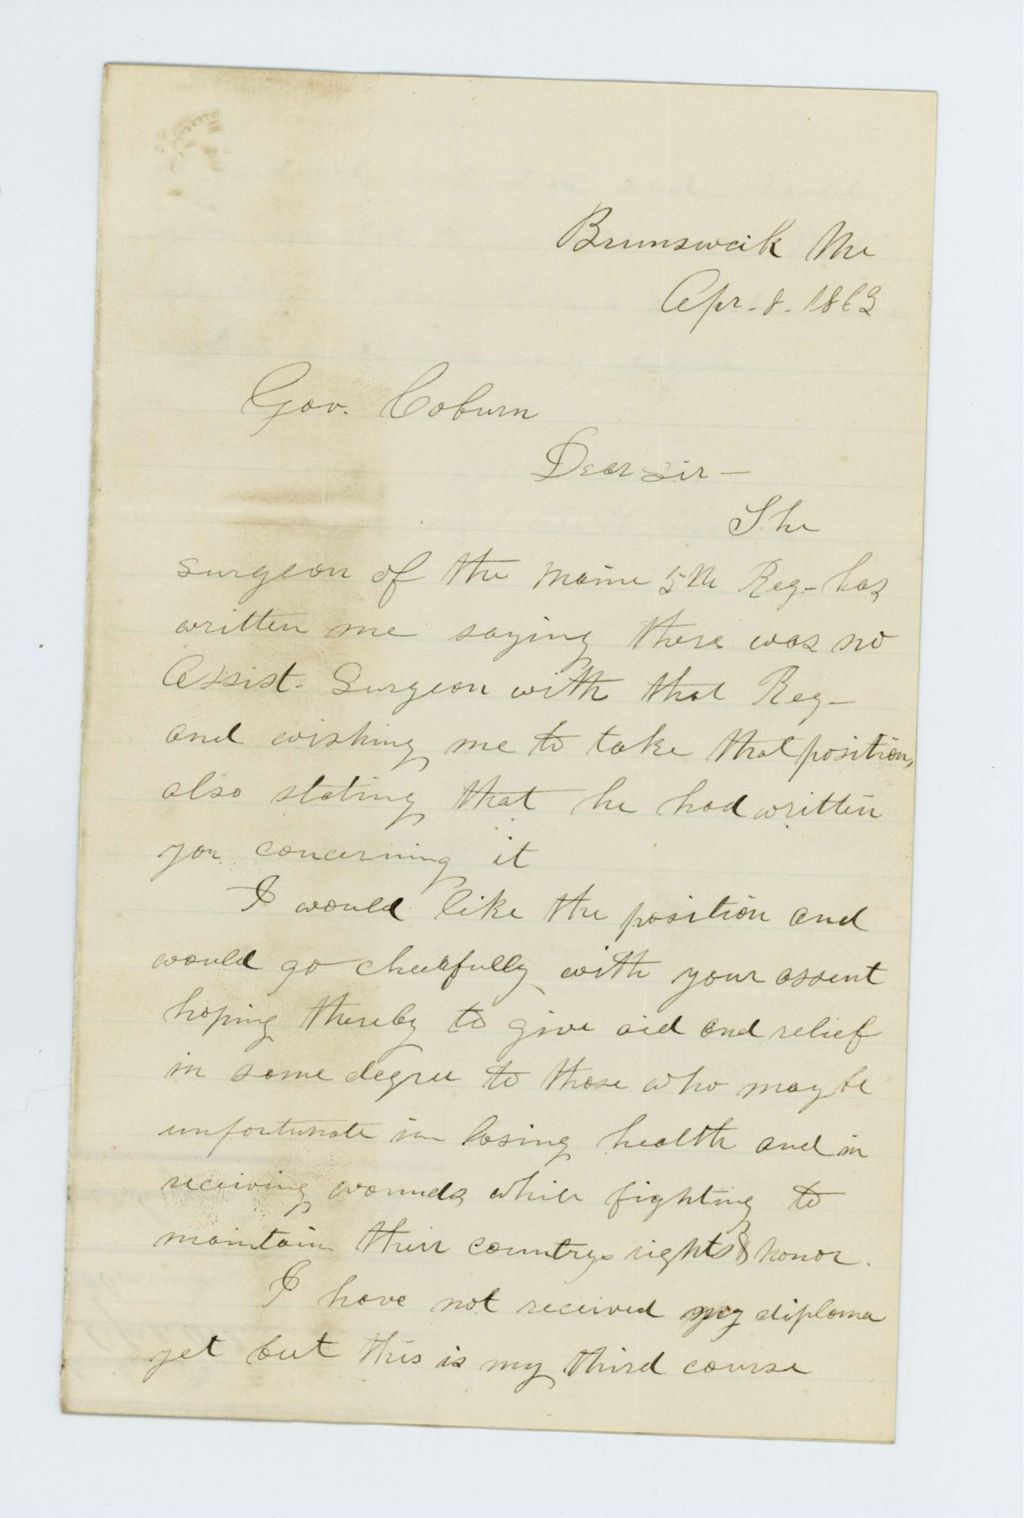 Brunswcik Me
Apr. 8. 1863
Gov. Coburn
Dear Sir -
The
surgeon of the Maine 5th Reg - has
written me saying there was no
Assist. Surgeon with that Reg -
and wishing me to take that position,
also stating that he had written
you concerning it
I would like the position and
would go cheerfully with your assent
hoping thereby to give aid and relief
in some degree to those who may be
unfortunate in losing health and in
receiving wounds while fighting to
maintain their countrys rights & honor.
I have not received my diploma
yet but this is my third course